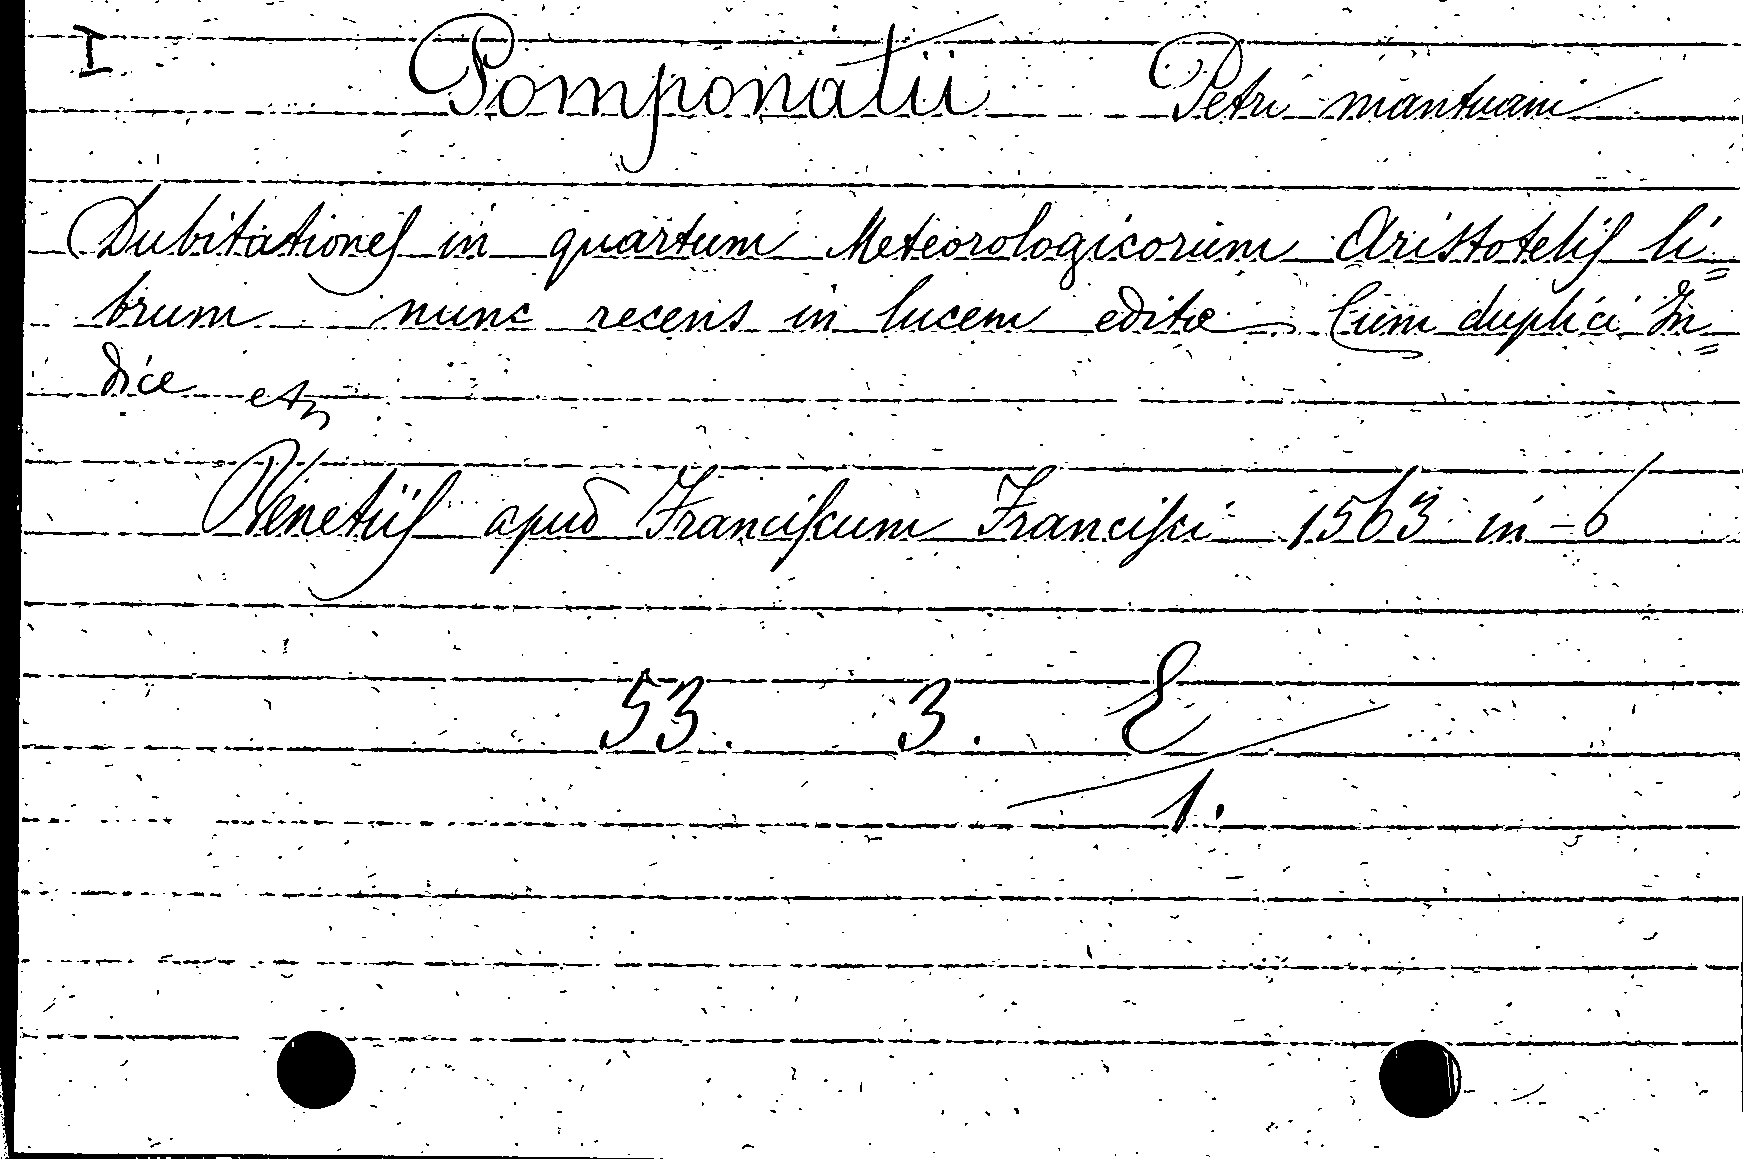 I Pomponatii Petri mantuani
Dubitationes in quartum Meteorologicorum Aristotelis li=
brum nunc recens in lucem editæ Cum duplici In=
dice etc
Venetiis apud Franciscum Francisci 1563 in-6
53. 3. E
1.